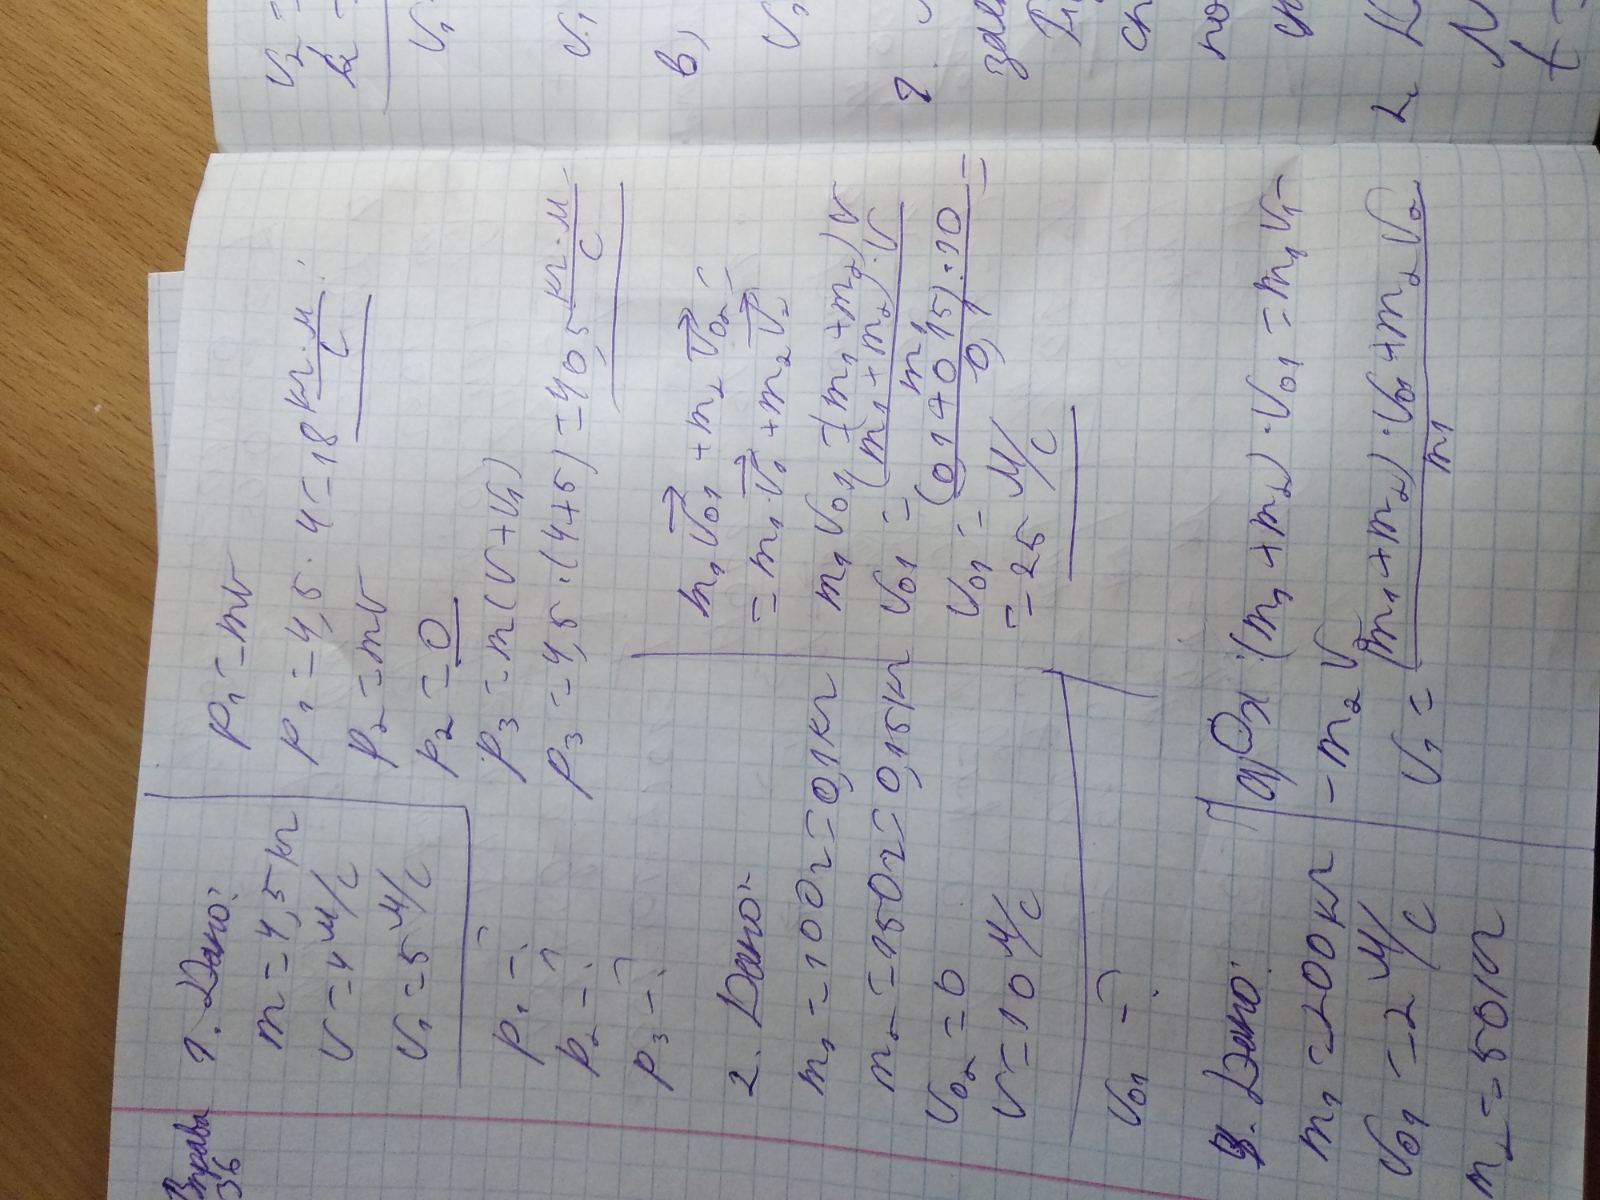 Вправа
36
1. Дано:
m = 4,5 кг
v = 4 м/с
v₁ = 5 м/с
p₁ - ?
p₂ - ?
p₃ - ?
p₁ = mv
p₁ = 4,5 · 4 = 18 кг·м/с
p₂ = mv
p₂ = 0
p₃ = m(v + v₁)
p₃ = 4,5 · (4+5) = 40,5 кг·м/с
2. Дано:
m₁ = 100 г = 0,1 кг
m₂ = 150 г = 0,15 кг
v₀₂ = 0
v = 10 м/с
v₀₁ - ?
m₁v⃗₀₁ + m₂v⃗₀₂ =
= m₁·v⃗₁ + m₂v⃗₂
m₁v₀₁ = (m₁ + m₂)v
v₀₁ = (m₁ + m₂)·v / m₁
v₀₁ = (0,1 + 0,15)·10 / 0,1 =
= 25 м/с
3. Дано:
m₁ = 200 кг
v₀₁ = 2 м/с
m₂ = 50 кг
а) Ox: (m₁ + m₂)·v₀₁ = m₁v₁ -
- m₂v
v₁ = (m₁ + m₂)·v₀₁ + m₂v₂ / m₁
v₂ =
v₁
v₁
в)
v₁
2.